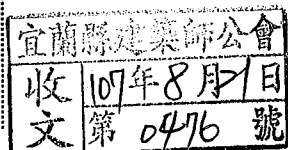 宜蘭縣建築師公會
收文
107年8月21日
第 0476 號